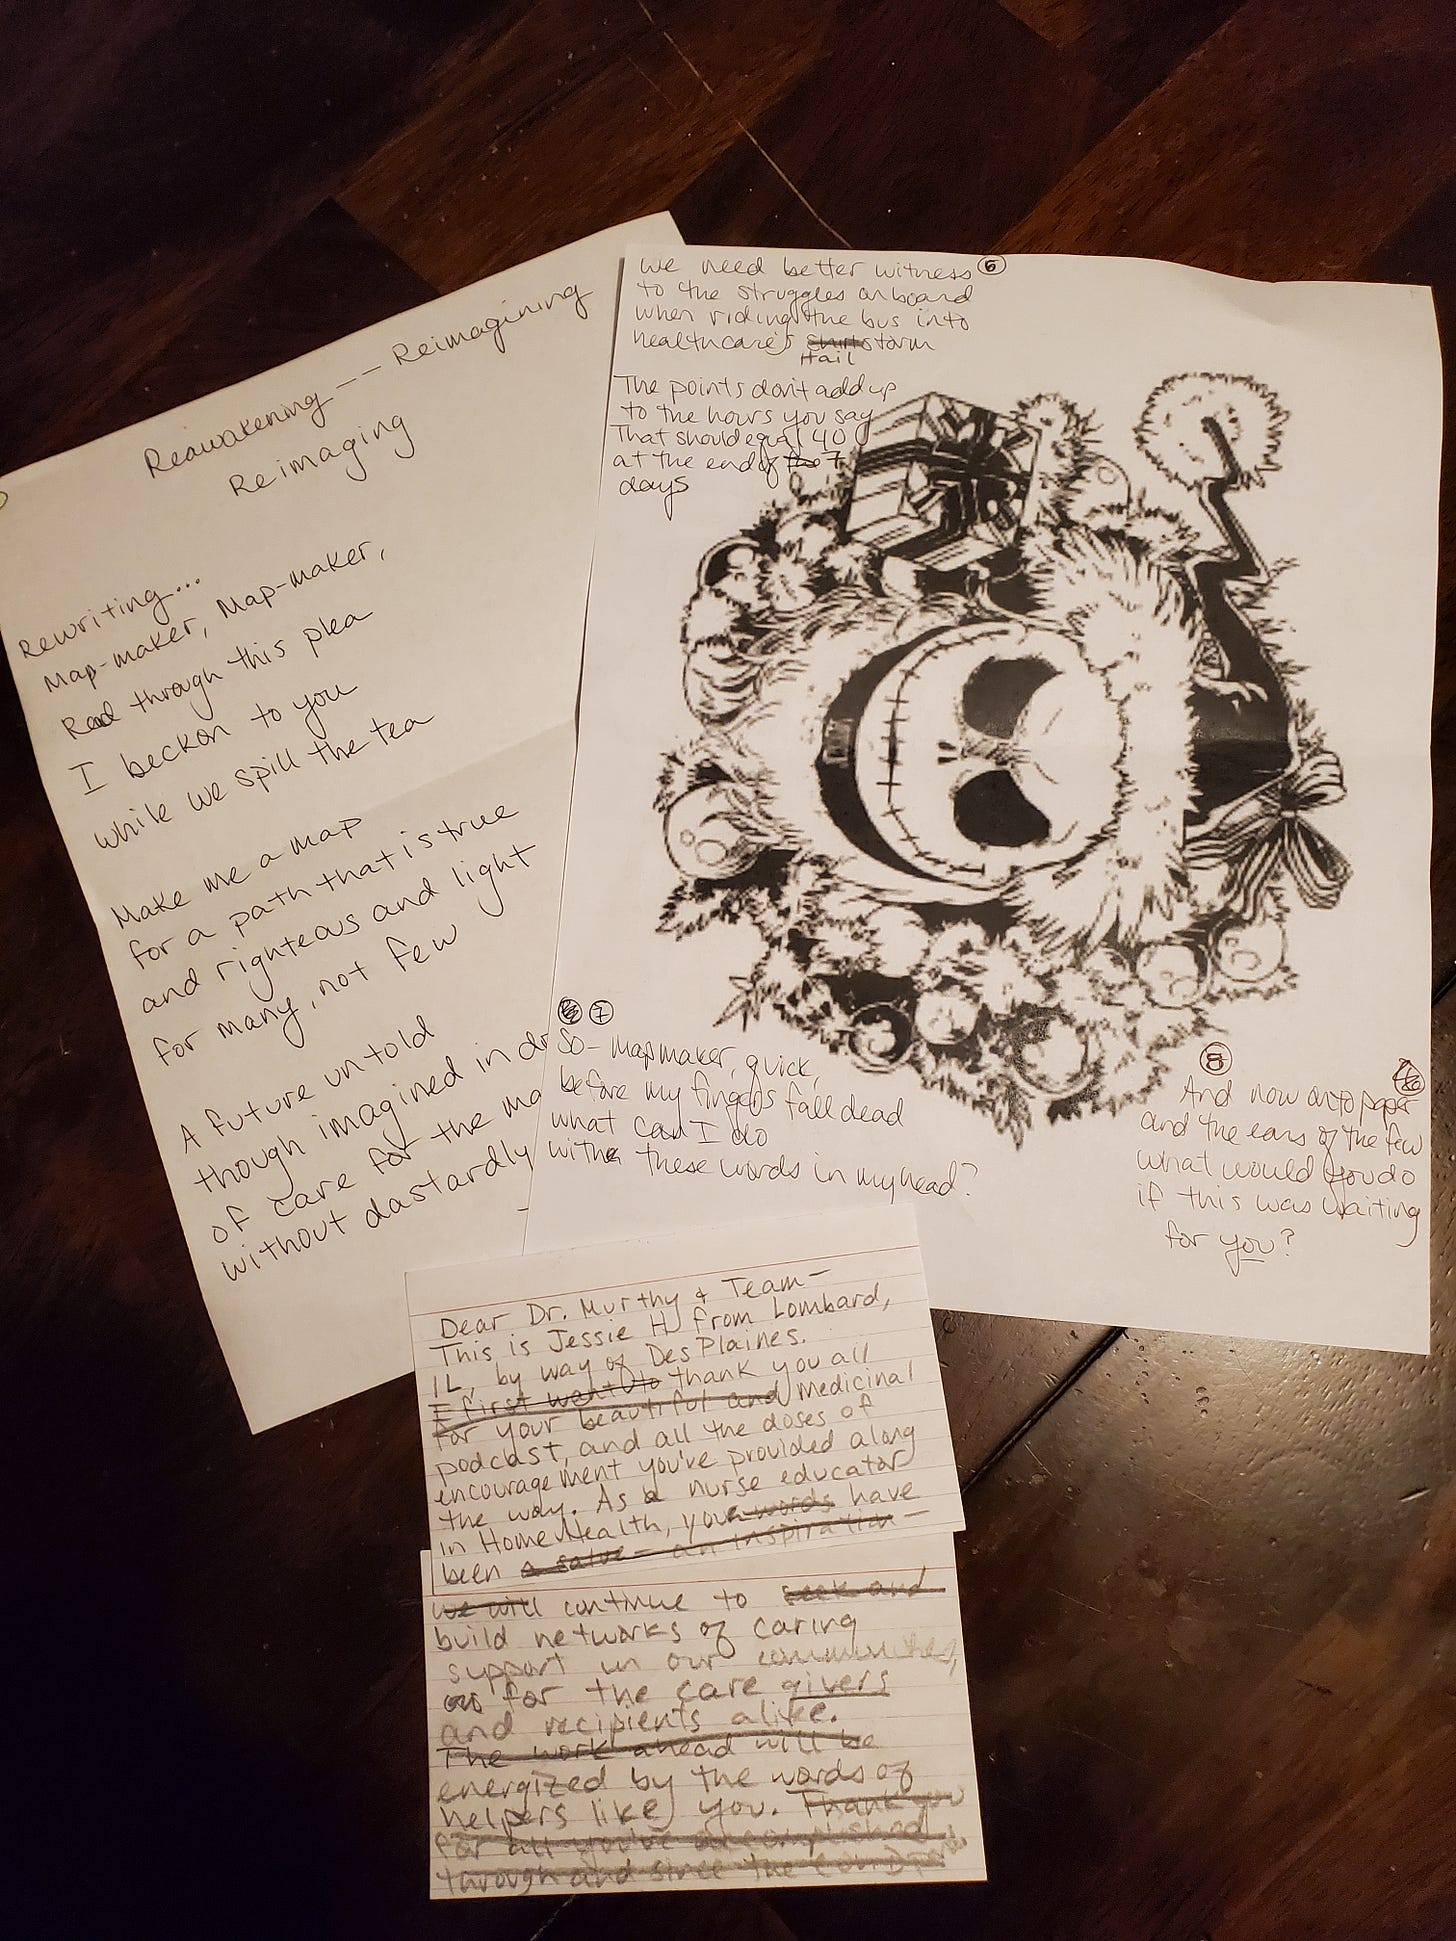 Reawakening -- Reimagining
Reimaging
Rewriting...
Map-maker, Map-maker,
Read through this plea
I beckon to you
while we spill the tea
Make me a map
for a path that is true
and righteous and light
for many, not few
A future untold
though imagined in dr
of care for the ma
without dastardly
we need better witness 6
to the struggles onboard
when riding the bus into
healthcare's storm
Hail
The points don't add up
to the hours you say
That should equal 40
at the end of the 7
days
7
So - mapmaker, quick,
before my fingers fall dead
what can I do
with these words in my head?
8
And now onto paper
and the ears of the few
what would you do
if this was waiting
for you?
Dear Dr. Murthy & Team -
This is Jessie H from Lombard,
IL, by way of Des Plaines.
I first want to thank you all
for your beautiful and medicinal
podcast, and all the doses of
encouragement you've provided along
the way. As a nurse educator
in Home Health, your words have
been a salve - an inspiration -
we will continue to seek and
build networks of caring
support in our communities,
for the care givers
and recipients alike.
The work ahead will be
energized by the words of
helpers like you. Thank you
for all you've accomplished
through and since the